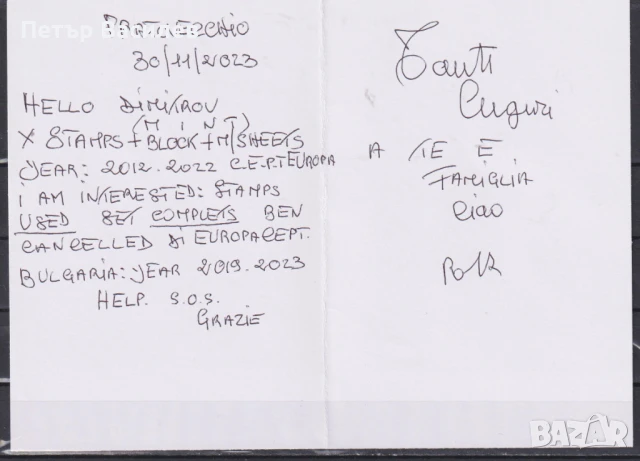 Петър Василев
30/11/2023
HELLO DIMITROV
(MINT)
X STAMPS + BLOCK + M/SHEETS
YEAR: 2012.2022 C.E.P.T EUROPA
I AM INTERESTED: STAMPS
USED SET COMPLETS BEN
CANCELLED DI EUROPA CEPT.
BULGARIA: YEAR 2019.2023
HELP. S.O.S.
GRAZIE
Tanti
Auguri
A TE E
FAMIGLIA
Ciao
BAZAR